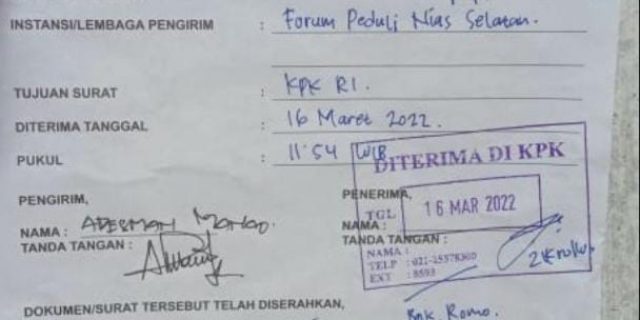 INSTANSI/LEMBAGA PENGIRIM : Forum Peduli Nias Selatan.
TUJUAN SURAT : KPK RI.
DITERIMA TANGGAL : 16 Maret 2022.
PUKUL : 11.54 WIB
DITERIMA DI KPK
PENGIRIM,
PENERIMA,
TGL 16 MAR 2022
NAMA :
NAMA :
TANDA TANGAN :
TANDA TANGAN :
NAMA :
TELP : 021-25578300
EXT : 8593
DOKUMEN/SURAT TERSEBUT TELAH DISERAHKAN,
Romo.